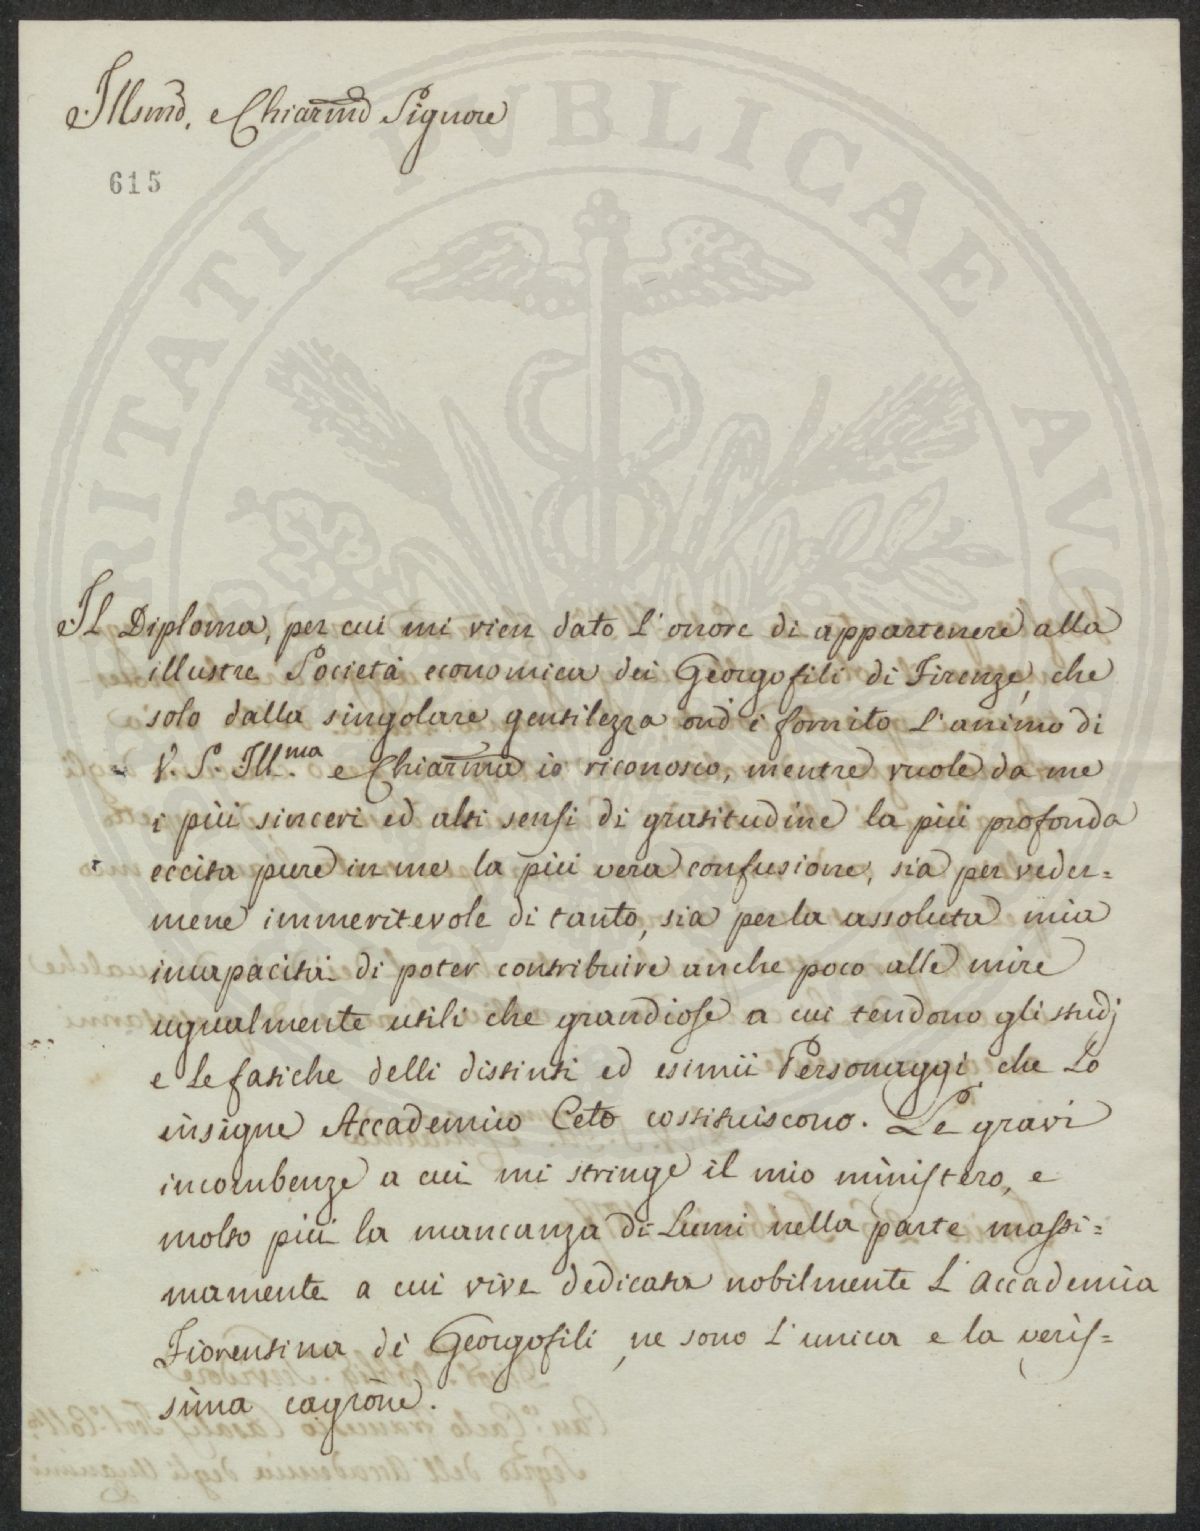 Illsmo, e Chiarmo Signore
615
Il Diploma, per cui mi vien dato l'onore di appartenere alla
illustre Società economica dei Georgofili di Firenze, che
solo dalla singolare gentilezza ond'è fornito l'animo di
V. S. Ill.ma e Chiarma io riconosco, mentre vuole da me
i più sinceri ed alti sensi di gratitudine la più profonda
eccita pure in me la più vera confusione, sia per veder=
mene immeritevole di tanto, sia per la assoluta mia
incapacità di poter contribuire anche poco alle mire
ugualmente utili che grandiose a cui tendono gli studj
e le fatiche delli distinti ed esimii Personaggi che lo
insigne Accademico Ceto costituiscono. Le gravi
incombenze a cui mi stringe il mio ministero, e
molto più la mancanza di Lumi nella parte massi=
mamente a cui vive dedicata nobilmente l'Accademia
Fiorentina de' Georgofili, ne sono l'unica e la veris=
sima cagione.
RITATI PUBLICAE AUG